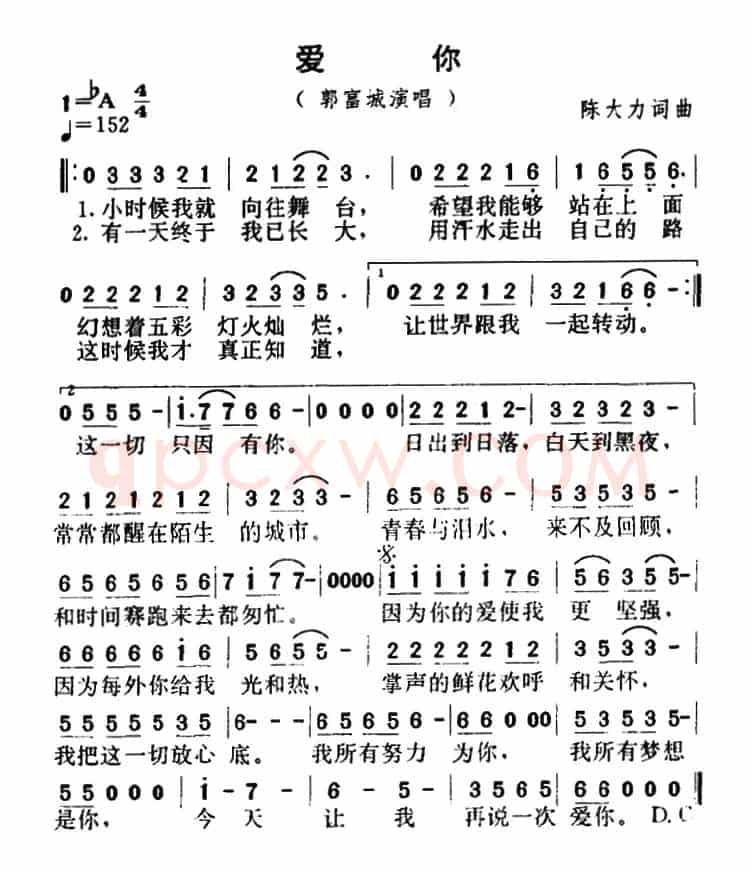 爱 你
1=♭A 4/4
（郭富城演唱）
陈大力词曲
♩=152
‖: 0 3 3 3 2 1 | 2 1 2 2 3 · | 0 2 2 2 1 6 | 1 6 5 5 6 ·
1. 小时候我就 向往舞 台， 希望我能够 站在上 面
2. 有一天终于 我已长 大， 用汗水走出 自己的 路
0 2 2 2 1 2 | 3 2 3 3 5 · | 1 0 2 2 2 1 2 | 3 2 1 6 6 - :‖
幻想着五彩 灯火灿 烂， 让世界跟我 一起转动。
这时候我才 真正知 道，
2
0 5 5 5 - | i · 7 7 6 6 | 0 0 0 0 | 2 2 2 1 2 - | 3 2 3 2 3 -
这一切 只因 有你。 日出到日落，白天到黑夜，
2 1 2 1 2 1 2 | 3 2 3 3 - | 6 5 6 5 6 - | 5 3 5 3 5 -
常常都醒在陌生 的城市。 青春与泪水， 来不及回顾，
6 5 6 5 6 5 6 | 7 i 7 7 - | 0 0 0 0 | i i i i i 7 6 | 5 6 3 5 5 -
和时间赛跑来去都匆忙。 因为你的爱使我 更 坚强，
6 6 6 6 6 i 6 | 5 6 5 5 - | 2 2 2 2 2 1 2 | 3 5 3 3 -
因为每外你给我 光和热， 掌声的鲜花欢呼 和关怀，
5 5 5 5 5 3 5 | 6 - - - | 6 5 6 5 6 - | 6 6 0 0 0 | 5 3 5 3 5 -
我把这一切放心 底。 我所有努力 为你， 我所有梦想
5 5 0 0 0 | i - 7 - | 6 - 5 - | 3 5 6 5 | 6 6 0 0 0 ‖
是你， 今 天 让 我 再说一次 爱你。 D.C
qpcxw.COM